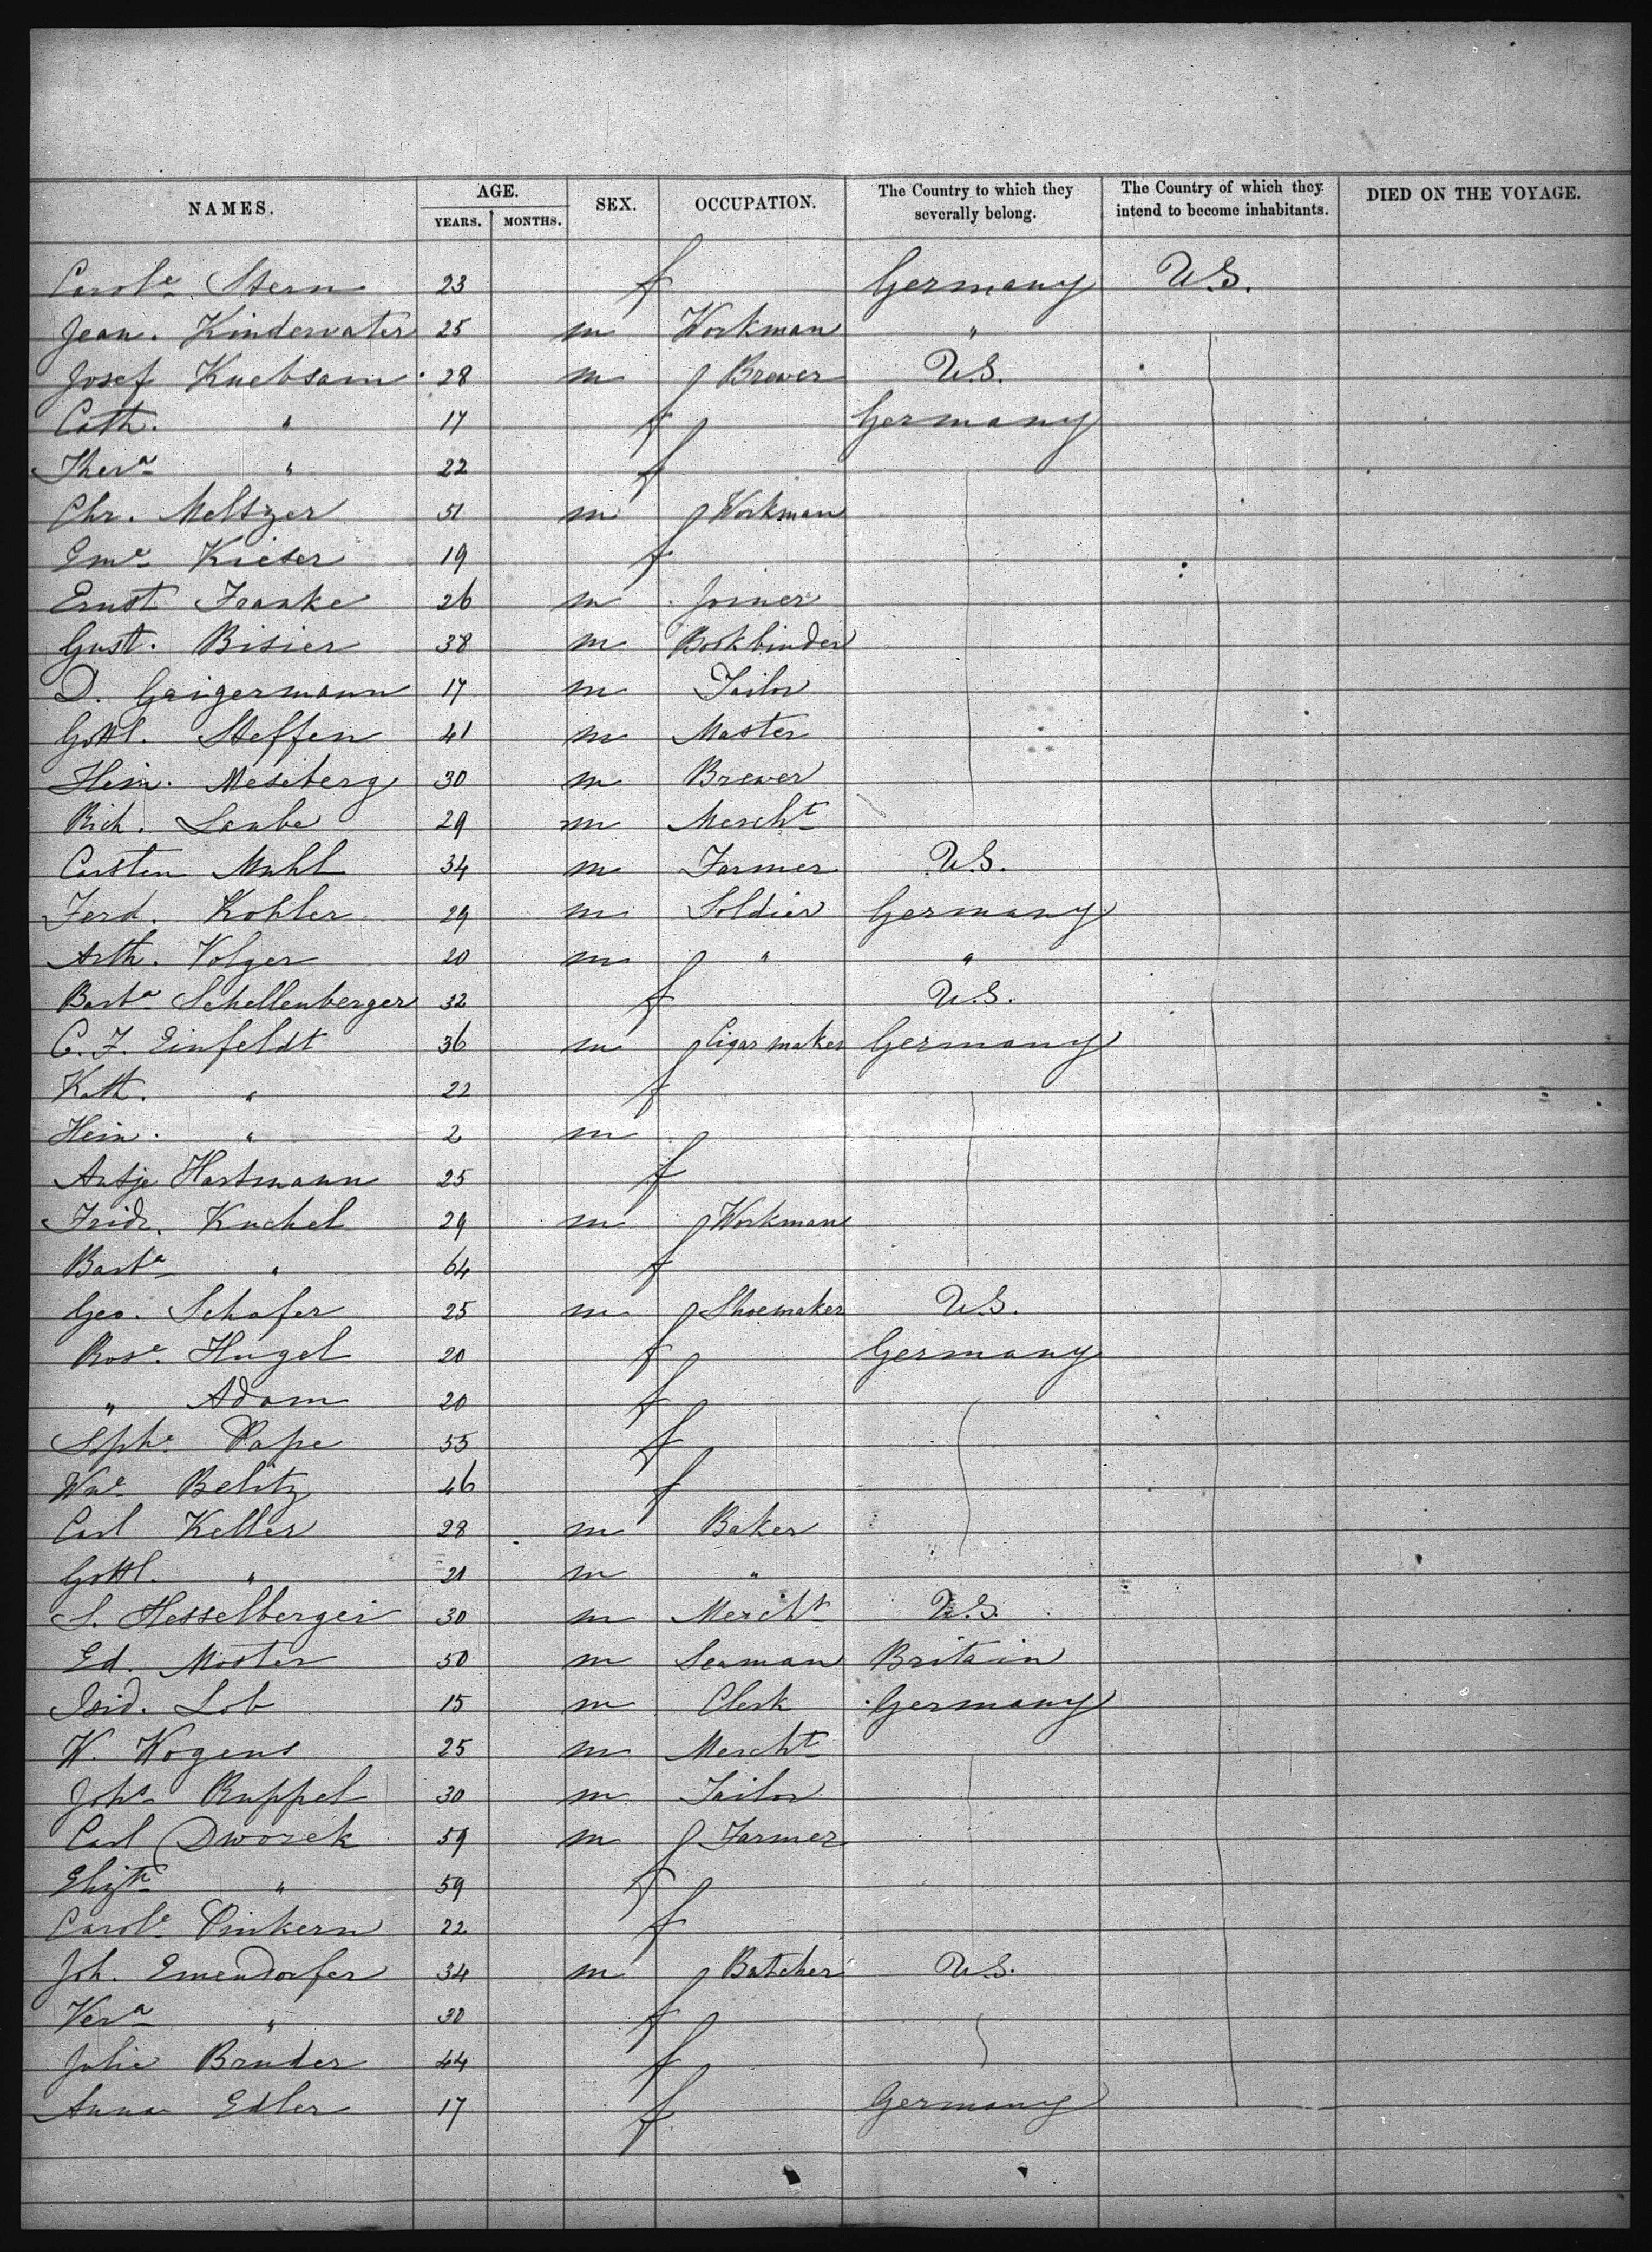 NAMES. AGE. SEX. OCCUPATION. The Country to which they severally belong. The Country of which they intend to become inhabitants. DIED ON THE VOYAGE.
YEARS. MONTHS.
Carole Stern 23 f Germany U.S.
Jean. Kindervater 25 m Workman "
Josef Knebsam 28 m Brewer U.S.
Cath. " 17 f Germany
Thera " 22 f
Chr. Meltzer 51 m Workman
Eme Kieser 19 f
Ernst Franke 26 m Joiner
Gust. Bisier 38 m Bookbinder
D. Gaigermann 17 m Tailor
Gottl. Steffen 41 m Master
Hein. Meseberg 30 m Brewer
Rich. Laube 29 m Mercht
Carsten Muhl 34 m Farmer U.S.
Ferd. Kohler 29 m Soldier Germany
Arth. Volger 20 m " "
Barba Schellenberger 32 f U.S.
C. F. Einfeldt 36 m Cigar maker Germany
Kath. " 22 f
Hein. " 2 m
Antje Hartmann 25 f
Fridr. Kuchel 29 m Workman
Barba " 64 f
Geo. Schafer 25 m Shoemaker U.S.
Rose. Hugel 20 f Germany
" Adam 20 f
Sophe Pape 55 f
Wne Belitz 46 f
Carl Keller 28 m Baker
Gottl. " 21 m "
S. Hesselberger 30 m Mercht U.S.
Ed. Moster 50 m Seaman Britain
Isid. Lob 15 m Clerk Germany
W. Wogens 25 m Mercht
Johs Ruppel 30 m Tailor
Carl Dworek 59 m Farmer
Elizth " 59 f
Carole Pinkern 22 f
Joh. Emendorfer 34 m Butcher U.S.
Vera " 30 f
Julie Bruder 44 f
Anna Edler 17 f Germany